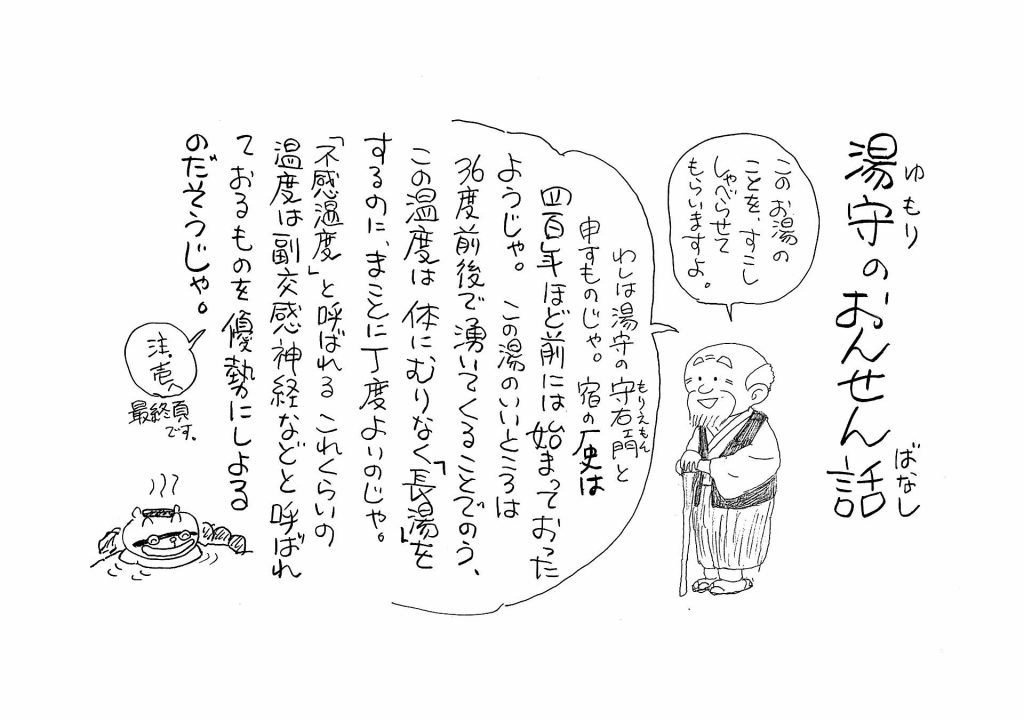 湯守のおんせん話
ゆもり
ばなし
このお湯の
ことを、すこし
しゃべらせて
もらいますよ。
わしは湯守の守右ェ門と
もりえもん
申すものじゃ。宿の歴史は
四百年ほど前には始まっておった
ようじゃ。この湯のいいところは
36度前後で湧いてくることでのう、
この温度は体にむりなく「長湯」を
するのに、まことに丁度よいのじゃ。
「不感温度」と呼ばれるこれくらいの
温度は副交感神経などと呼ばれ
ておるものを優勢にしよる
のだそうじゃ。
注.壱
最終頁
です。